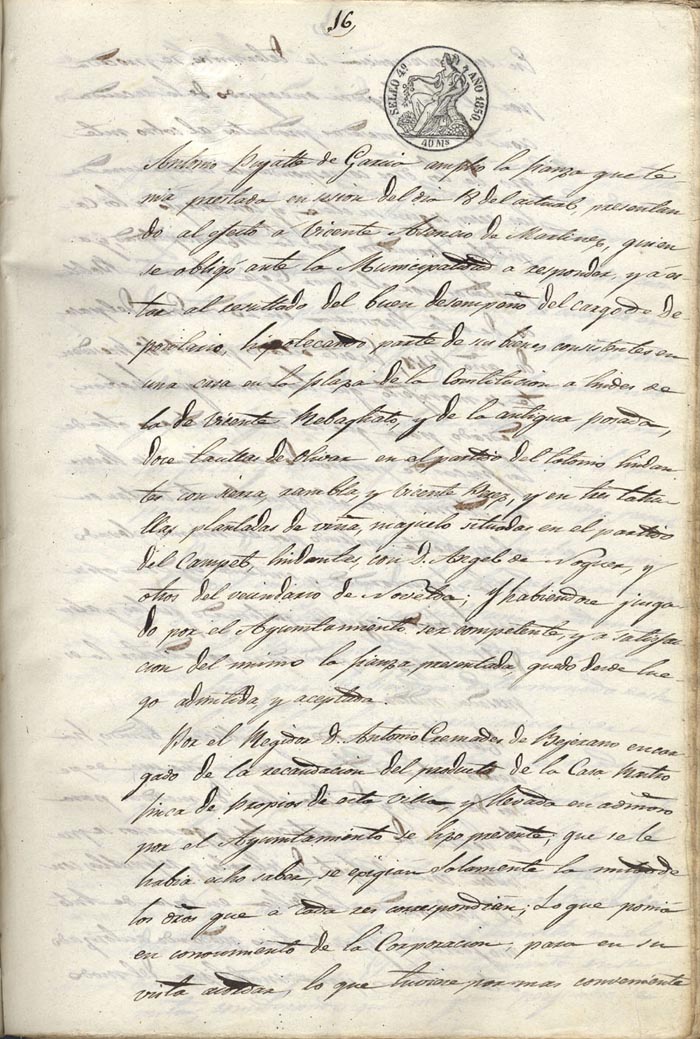 16
SELLO 4º AÑO 1850.
40 Ms
Antonio de Garcia amplió la fianza que te-
nia prestada en sesion del dia 18 del actual, presentan-
do al efecto a Vicente Asencio de Martinez, quien
se obligó ante la Municipalidad a responder, y a es-
tar al resultado del buen desempeño del cargo de De-
positario, hipotecando parte de sus bienes consistentes en
una casa en la plaza de la Constitucion a lindes de
la de Vicente Rebagliato, y de la antigua posada,
doce de olivar en el partido del lindan-
tes con sierra, rambla, y Vicente Perez, y en tres tahu-
llas plantadas de viña, majuelo situadas en el partido
del Campet, lindantes, con D. Angel de Noguera, y
otros del vecindario de Novelda; y habiendose juzga-
do por el Ayuntamiento ser competente, y a satisfac-
cion del mismo la fianza presentada, quedo desde lue-
go admitida, y aceptada.
Por el Regidor D. Antonio Cremades de Bejerano encar-
gado de la recaudacion del producto de la Casa Rastro
finca de Propios de esta villa y llevada en admon
por el Ayuntamiento se hizo presente, que se le
habia echo saber, se exigian solamente la mitad de
los dros que a cada res correspondian; Lo que ponia
en conocimiento de la Corporacion, para en su
vista acordar, lo que tuviere por mas conveniente